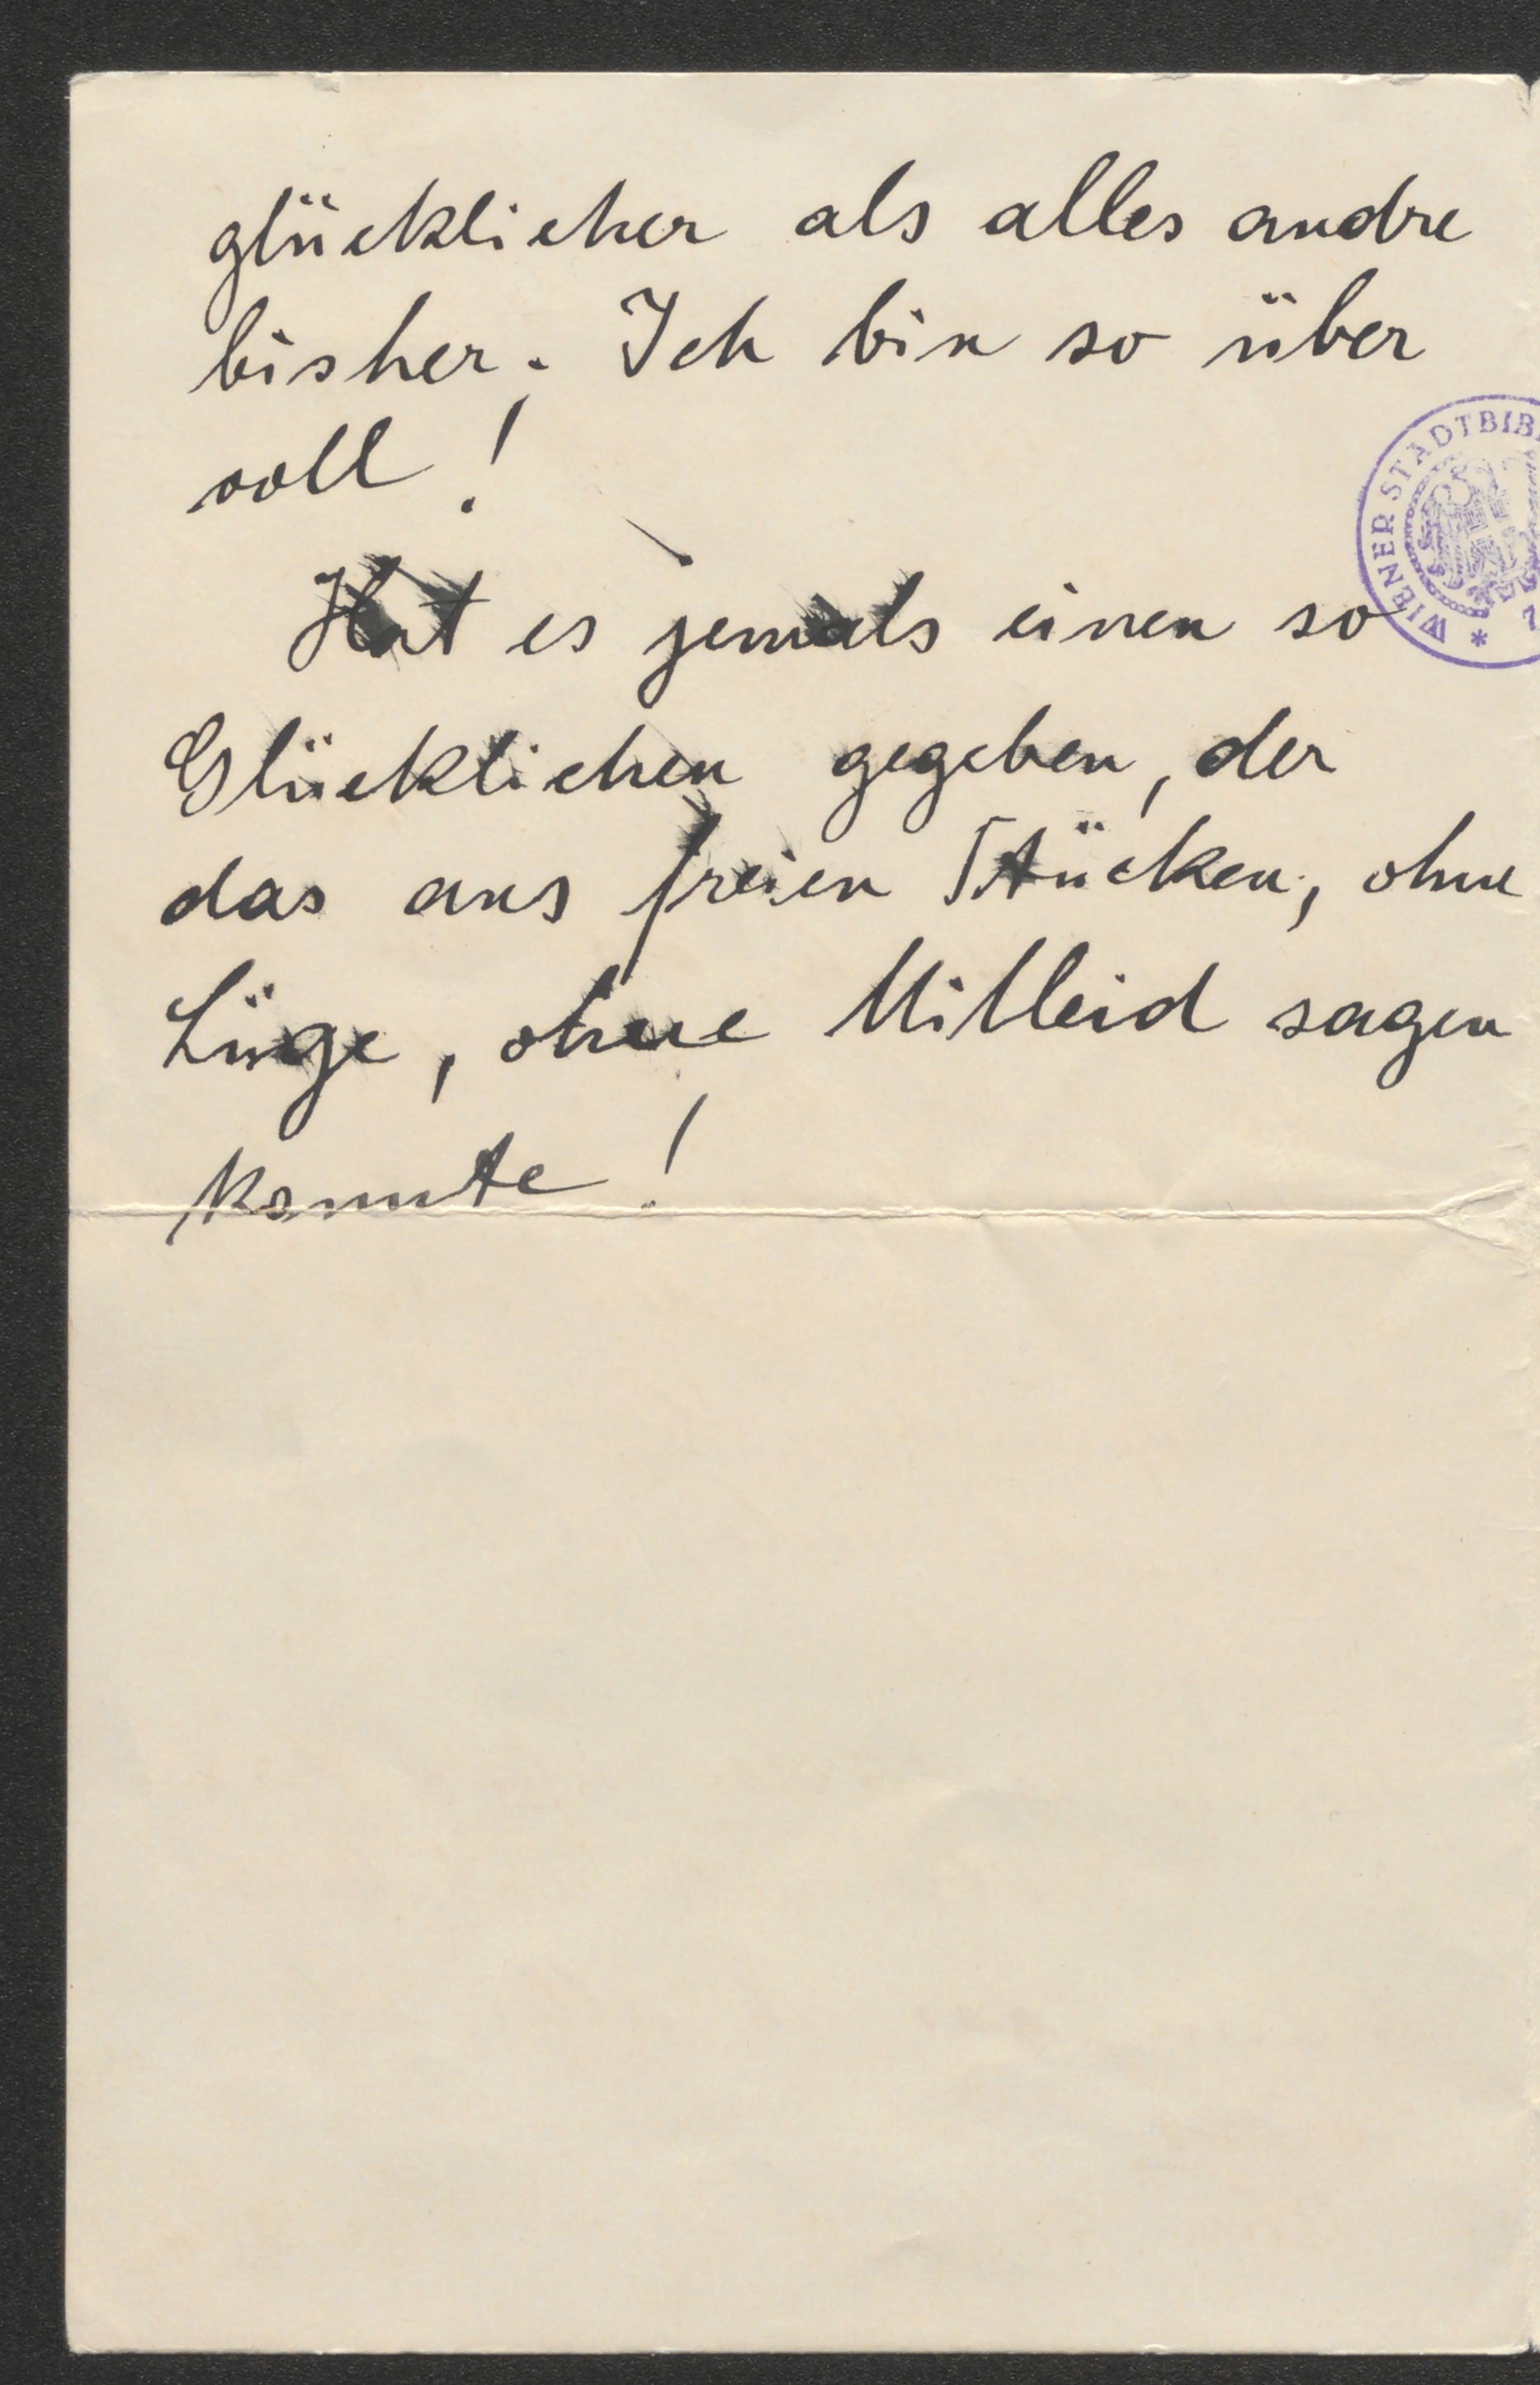 glücklicher als alles andre
bisher. Ich bin so über
voll!
Hat es jemals einen so
Glücklichen gegeben, der
das aus freien Stücken, ohne
Lüge, ohne Mitleid sagen
konnte!
WIENER STADTBIB